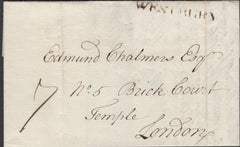 WESTBURY
Edmund Chalmers Esqr
7
No. 5 Brick Court
Temple
London